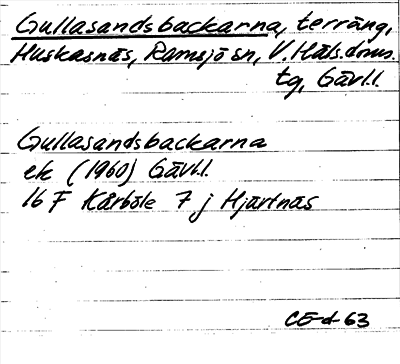 Gullasandsbackarna, terräng,
Huskasnäs, Ramsjö sn, V. Häls. doms.
tg, Gävl.l.
Gullasandsbackarna
ek (1960) Gävl.l.
16 F Kårböle 7 j Hjärtnäs
CE-d-63